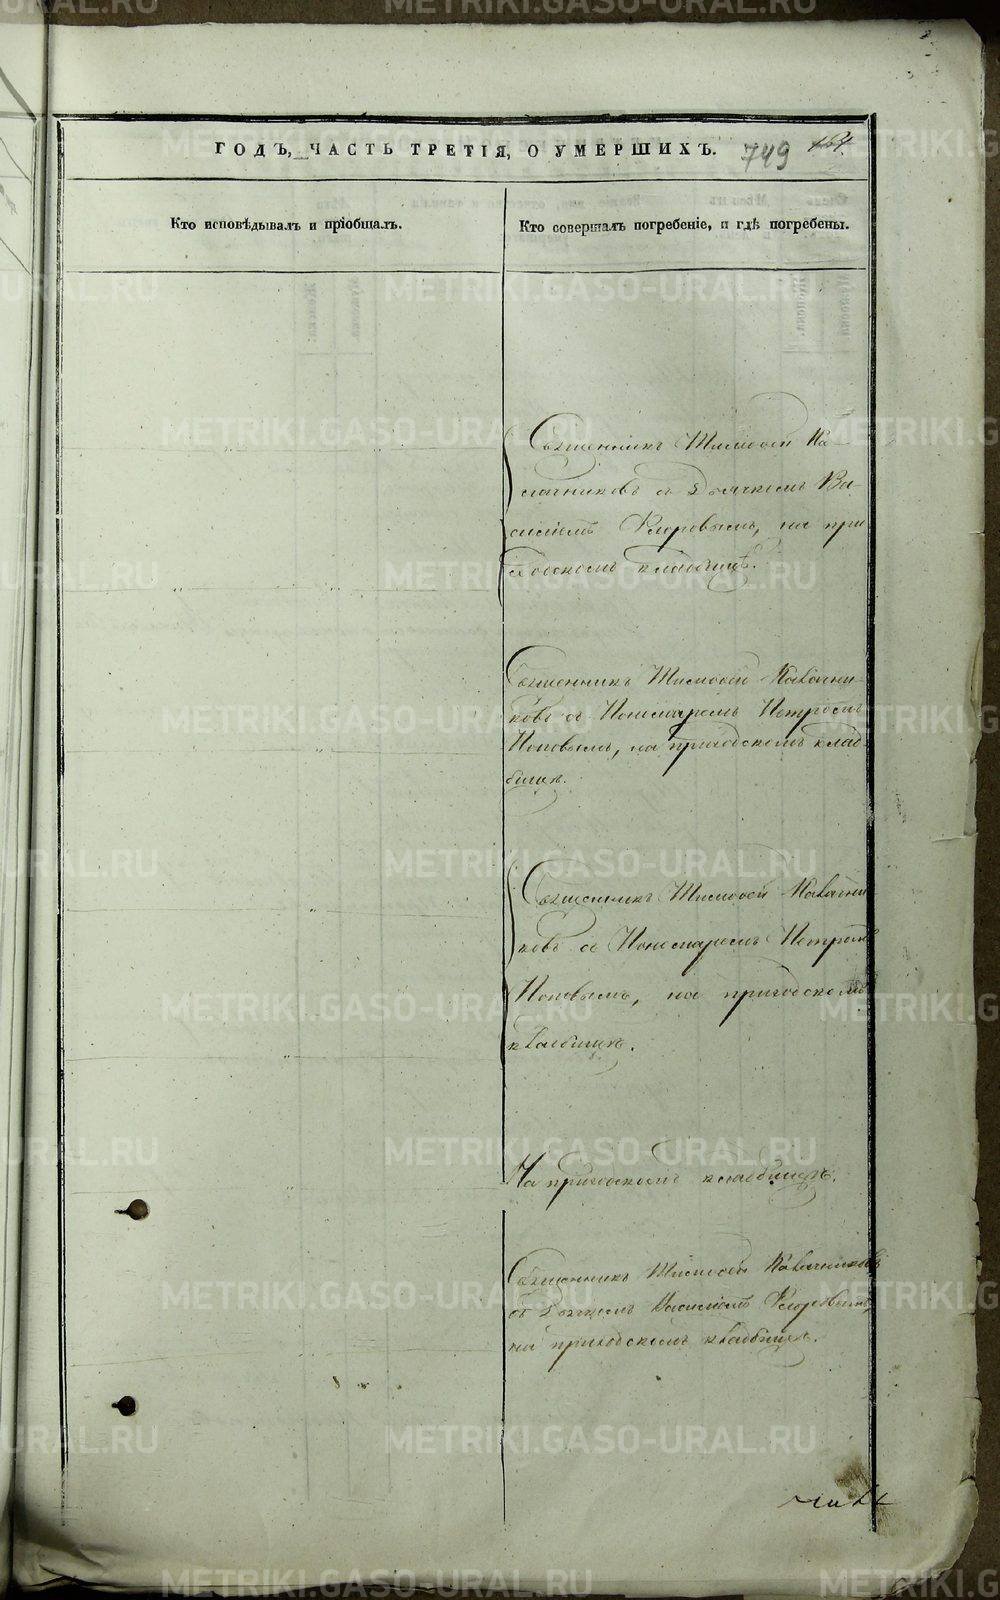 ГОДЪ, ЧАСТЬ ТРЕТІЯ, О УМЕРШИХЪ. 749
Кто исповѣдывалъ и прiобщалъ.
Кто совершалъ погребеніе, и гдѣ погребены.
Священникъ Тимофей Ка-
лачниковъ съ Дьячкомъ Ва-
силіемъ Флоровымъ, на при
ходскомъ кладбищѣ.
Священникъ Тимофей Калачни-
ковъ съ Пономаремъ Петромъ
Поповымъ, на приходскомъ клад-
бищѣ.
Священникъ Тимофей Калачни
ковъ съ Пономаремъ Петромъ
Поповымъ, на приходскомъ
кладбищѣ.
На приходскомъ кладбищѣ.
Священникъ Тимофей Калачниковъ
съ Дьячкомъ Василіемъ Флоровымъ,
на приходскомъ кладбищѣ.
METRIKI.GASO-URAL.RU